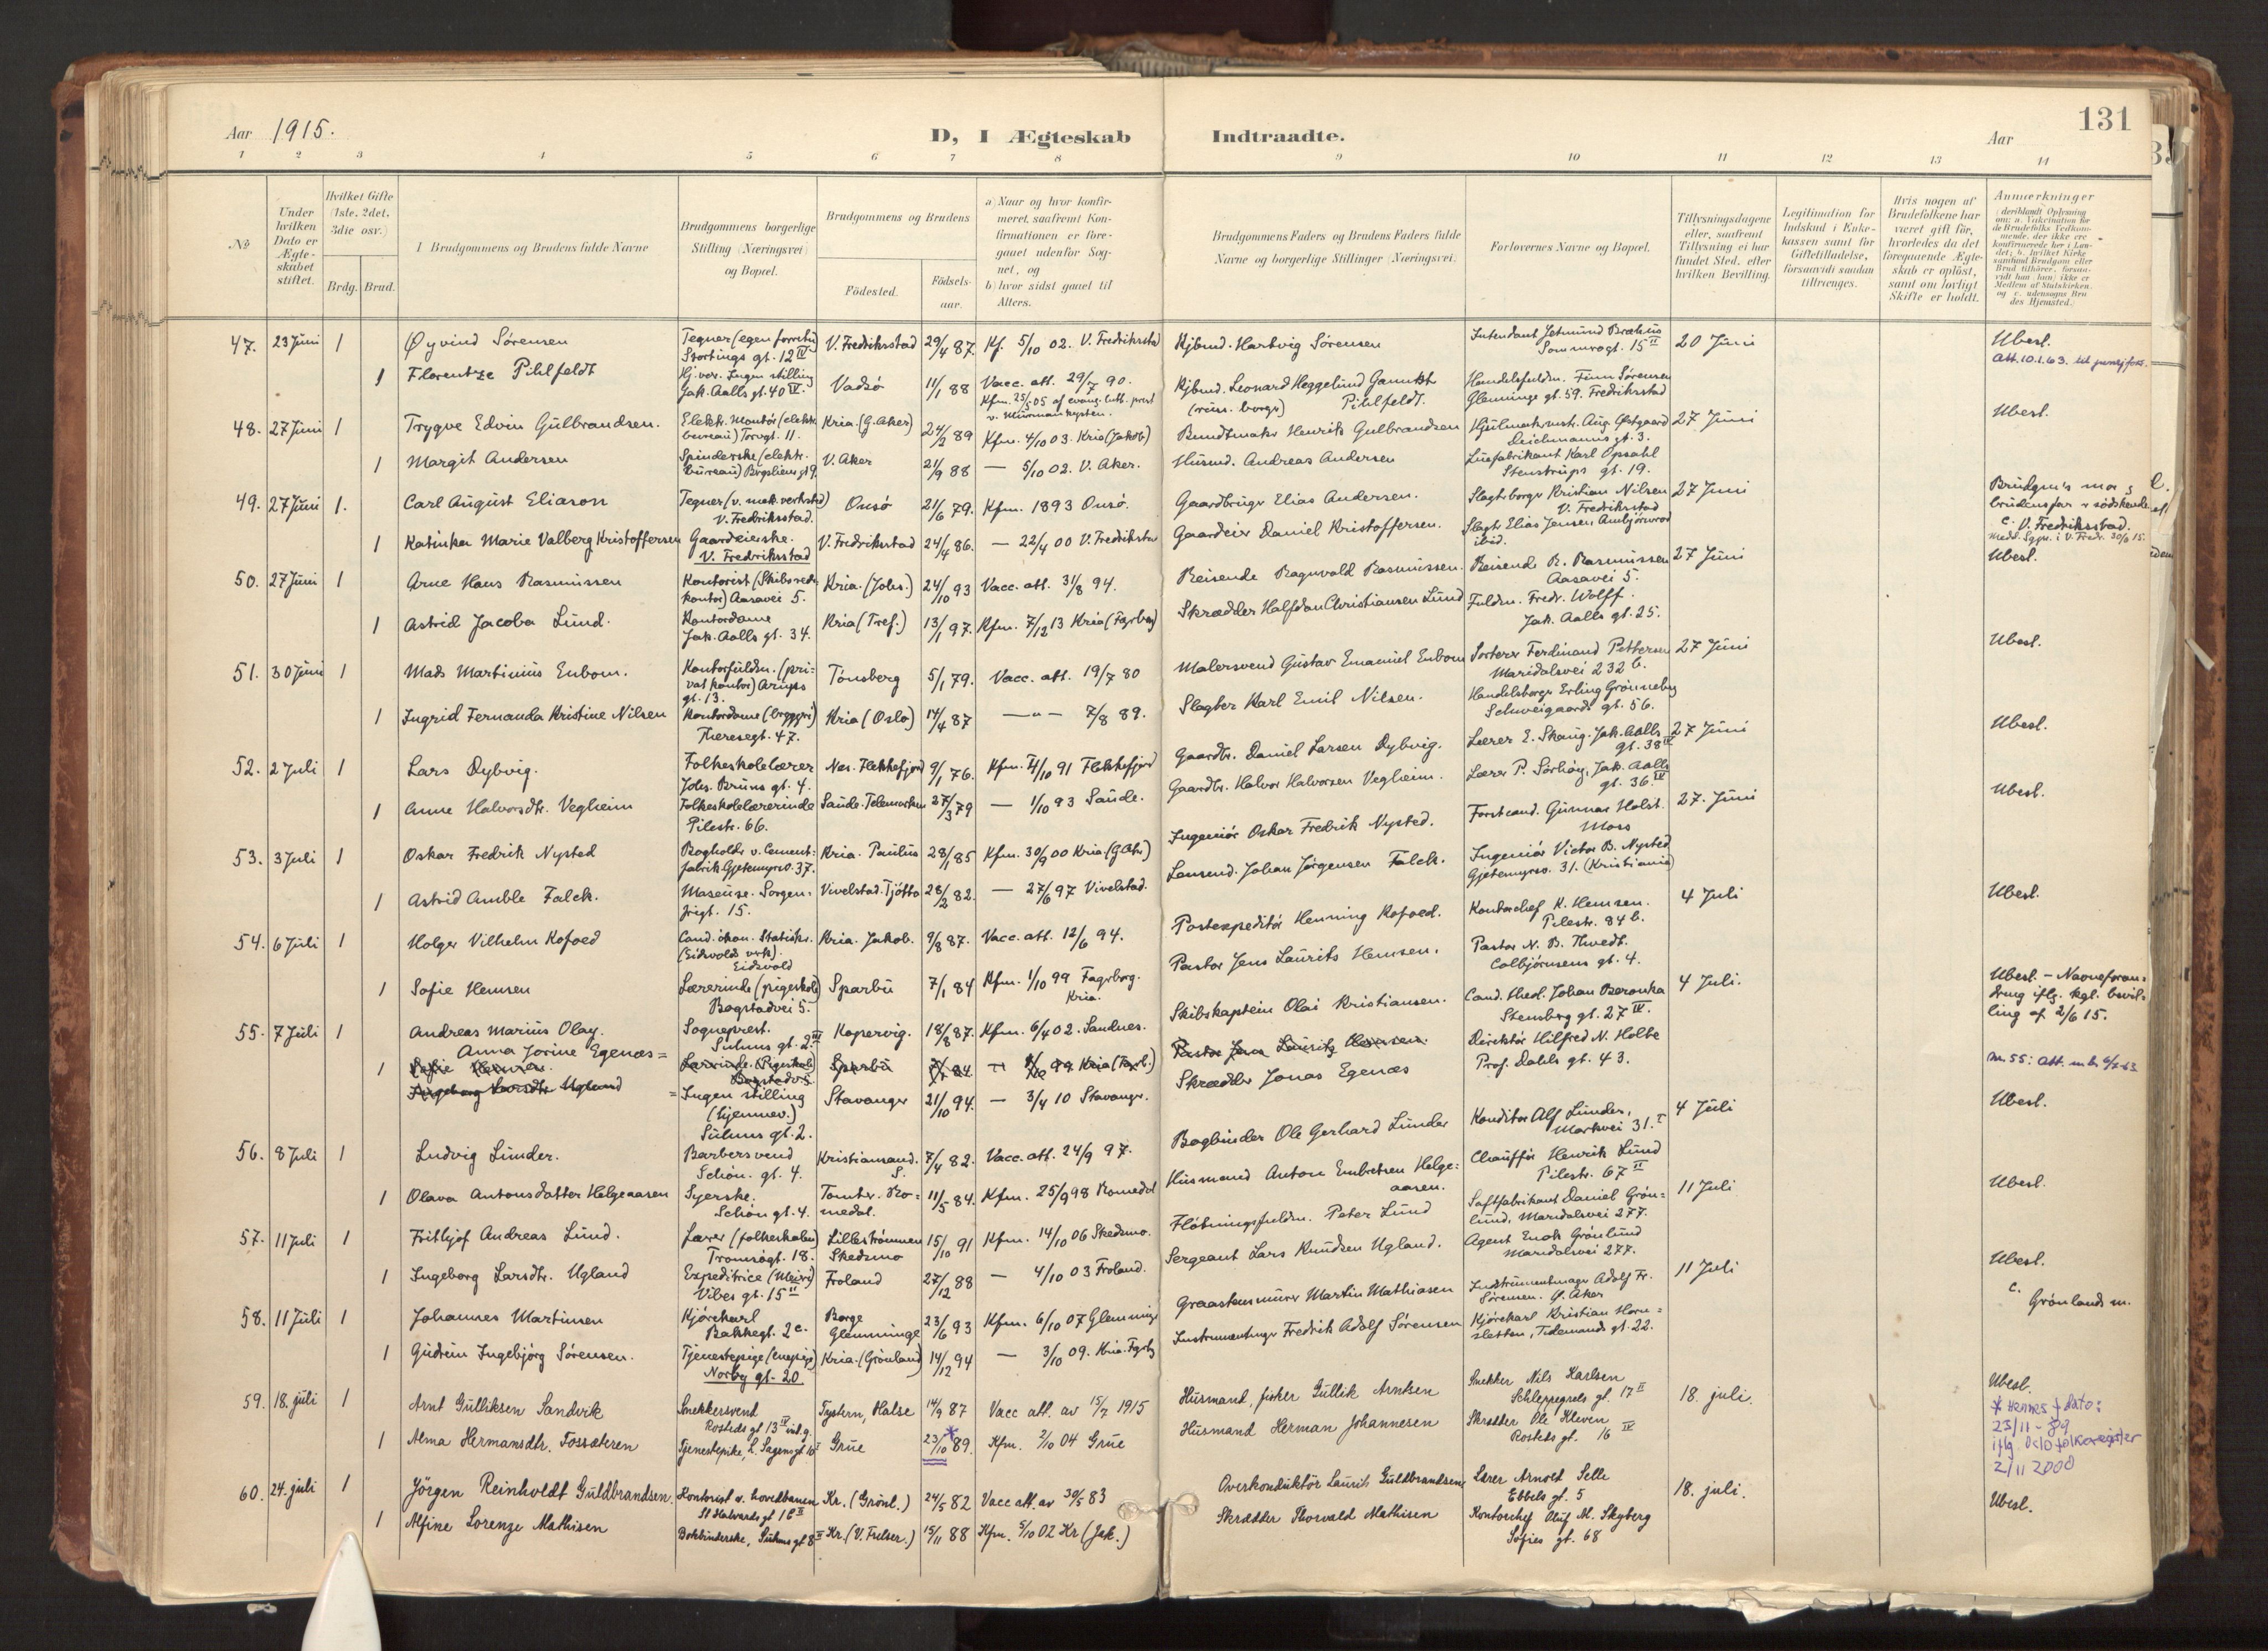 131
Aar 1915.
D, I Ægteskab Indtraadte.
Aar
1 2 3 4 5 6 7 8 9 10 11 12 13 14
No
Under hvilken Dato er Ægteskabet stiftet.
Hvilket Gifte (1ste, 2det, 3die osv.)
Brdg. Brud.
Brudgommens og Brudens fulde Navne
Brudgommens borgerlige Stilling (Næringsvei) og Bopæl.
Brudgommens og Brudens
Fødested. Fødselsaar.
a) Naar og hvor konfirmeret, saafremt Konfirmationen er foregaaet udenfor Sognet, og
b) hvor sidst gaaet til Alters.
Brudgommens Faders og Brudens Faders fulde Navne og borgerlige Stillinger (Næringsvei).
Forlovernes Navne og Bopæl.
Tillysningsdagene eller, saafremt Tillysning ei har fundet Sted, efter hvilken Bevilling.
Legitimation for Indskud i Enkekassen samt for Giftetilladelse, forsaavidt saadan tiltrænges.
Hvis nogen af Brudefolkene har været gift før, hvorledes da det foregaaende Ægteskab er opløst, samt om lovligt Skifte er holdt.
Anmærkninger
47. 23 Juni 1 Øyvind Sørensen
Stortings gt. 12 IV V. Fredriksstad 29/4 87. Kf. 5/10 02. V. Fredriksstad Kjbmd. Hartvig Sørensen
Sommrogt. 15 II 20 Juni Ubesl.
1 Florentze Pihlfeldt
Hj. vær. Ingen stilling
Jak. Aalls gt. 40 IV. Vadsø 11/1 88 Vacc. att. 29/7 90.
Kjbmd. Leonard Heggelund
Pihlfeldt.
Handelsfuldm. Finn Sørensen
Glemminge gt. 59. Fredriksstad
48. 27 Juni 1 Trygve Edvin Gulbrandsen.
Elektr. Montør (elektr. bureau) Torvgt. 11. Kria. (G. Aker) 24/2 89 Kfm. 4/10 03. Kria (Jakob) Bundtmaker Henrik Gulbrandsen
Deichmanns gt. 3. 27 Juni Ubesl.
1 Margit Andersen
V. Aker 21/9 88 — 5/10 02. V. Aker. Husmd. Andreas Andersen
Luefabrikant Karl Opsahl
Stenstrups gt. 19.
49. 27 Juni 1. Carl August Eliason
Tegner (v. mek. verksted)
V. Fredriksstad. Onsö 21/6 79. Kfm. 1893 Onsö. Gaardbruger Elias Andersen.
Kristian Nilsen
V. Fredriksstad 27 Juni
c. V. Fredriksstad.
1 Katinka Marie Valberg Kristoffersen
Gaardeierske.
V. Fredriksstad V. Fredriksstad 24/4 86. — 22/4 00 V. Fredriksstad Gaardeier Daniel Kristoffersen.
Slagter Elias Jensen
ibid.
50. 27 Juni 1 Arne Hans Rasmussen
Aasavei 5. Kria. (Johs.) 24/10 93 Vacc. att. 31/8 94. Reisende Ragnvald Rasmussen.
Reisende R. Rasmussen
Aasavei 5. 27 Juni Ubesl.
1 Astrid Jacoba Lund.
Kontordame
Jak. Aalls gt. 34. Kria (Tref.) 13/1 97. Kfm. 7/12 13 Kria (Fagerborg) Skrædder Halfdan Christiansen Lund
Fuldm. Fredr. Wolff.
Jak. Aalls gt. 25.
51. 30 Juni 1 Mads Martinius Enbom.
Kontorfuldm. (privat kontor) Arups gt. 13. Tönsberg 5/1 79. Vacc. att. 19/7 80 Malersvend Gustav Emanuel Enbom
Sorterer Ferdinand Pettersen
Maridalsvei 232 b. 27 Juni Ubesl.
1 Ingrid Fernanda Kristine Nilsen
Kontordame (bryggeri)
Theresegt. 47. Kria (Oslo) 14/4 87 —"— 7/8 89. Slagter Karl Emil Nilsen.
Handelsborger Erling Grönneberg
Schweigaards gt. 56.
52. 2 Juli 1 Lars Dybvig.
Folkeskolelærer
Johs. Bruns gt. 4. Nes. Flekkefjord 9/1 76. Kfm. 4/10 91 Flekkefjord Gaardbr. Daniel Larsen Dybvig.
Lærer E. Skaug. Jak. Aalls gt. 38 II 27 Juni Ubesl.
1 Anne Halvorsdtr. Vegheim
Folkeskolelærerinde
Pilestr. 66. Saude. Telemarken 27/3 79 — 1/10 93 Saude. Gaardbr. Halvor Halvorsen Vegheim.
Jak. Aalls gt. 36 IV
53. 3 Juli 1 Oskar Fredrik Nysted
Bogholder v. Cementfabrik Gjetemyrsv. 37. Kria. Paulus 28/1 85 Kfm. 30/9 00 Kria (G. Aker) Ingeniör Oskar Fredrik Nysted.
Forstcand. Gunnar Holst.
Moss 27. Juni Ubesl.
1 Astrid Amble Falck.
Maseuse. Sorgenfrigt. 15. Vivelstad. Tjötta 28/2 82. — 27/6 97 Vivelstad. Lensmd. Johan Jörgensen Falck.
Ingeniör Victor B. Nysted
Gjetemyrsv. 31. (Kristiania)
54. 6 Juli 1 Holger Vilhelm Kofoed
Cand. økon. Statistr.
(Eidsvolds verk).
Eidsvold Kria. Jakob. 9/8 87. Vacc. att. 12/6 94. Postexpeditör Henning Kofoed.
Kontorchef K. Hemsen.
Pilestr. 84 b. 4 Juli Ubesl.
1 Sofie Hemsen
Lærerinde (pigeskole)
Bogstadvei 5. Sparbu 7/1 84 Kfm. 1/10 99 Fagerborg. Kria. Pastor Jens Laurits Hemsen.
Pastor N. B. Thvedt.
Colbjörnsens gt. 4.
55. 7 Juli 1 Andreas Marius Olay.
Sogneprest.
Suhms gt. 2. III Kopervig. 18/8 87. Kfm. 6/4 02. Sandnes. Skibskaptein Olai Kristiansen.
Cand. theol. Johan Beronka
Stensberg gt. 27 IV. 4 Juli. Ubesl. – Navneforandring iflg. kgl. bevilling af 2/6 15.
Anna Jorine Egenæs =
1 Sofie Hemsen
Lærerinde (Pigeskole) Bogstadv. 5 Sparbu 7/1 84 — 1/10 99 Kria (Fagrb.) Pastor Jens Lauritz Hemsen.
Ingeborg Larsdtr Ugland
= Ingen stilling
(hjemmev.)
Suhms gt. 2. Stavanger 21/10 94. — 3/4 10 Stavanger. Skrædder Jonas Egenæs
Direktör Hilfred N. Holbe
Prof. Dahls gt. 43.
56. 8 Juli 1 Ludvig Lunder.
Barbersvend
Schön. gt. 4. Kristiansand. S. 7/4 82. Vacc. att. 24/9 97. Bogbinder Ole Gerhard Lunder
Konditor Alf Lunder,
Markvei 31. I 4 Juli Ubesl.
1 Olava Antonsdatter Helgeaasen
Syerske.
Schön gt. 4. Tomter. Romedal. 11/5 84. Kfm. 25/9 98 Romedal Husmand Anton Embretsen Helgeaasen.
Chauffør Henrik Lund
Pilestr. 67 II
57. 11 Juli 1 Frithjof Andreas Lund.
Lærer (folkeskolen)
Tromsøgt. 18. Lillestrømmen Skedsmo 15/10 91 Kfm. 14/10 06 Skedsmo. Fløtningsfuldm. Peter Lund
Saftfabrikant Daniel Grönlund, Maridalsvei 277. 11 Juli Ubesl.
1 Ingeborg Larsdtr. Ugland
Expeditrice (Meieri)
Vibes gt. 15 II Froland 27/12 88 — 4/10 03 Froland. Sergeant Lars Knudsen Ugland.
Agent Enok Grönlund
Maridalsvei 277.
58. 11 Juli 1 Johannes Martinsen
Kjörekarl
Bakkegt. 2 c. Borge Glemminge 23/6 93 Kfm. 6/10 07 Glemminge Graastensmurer Martin Mathiasen
Instrumentmager Adolf Fr. Sörensen. Ø. Aker 11 Juli Ubesl.
c. Grönlands m.
1 Gudrun Ingebjörg Sörensen.
Tjenestepige (enepige)
Norby gt. 20 Kria. (Grönland) 14/12 94 — 3/10 09. Kria. Fagrb. Instrumentmgr Fredrik Adolf Sörensen
Kjörekarl Kristian Hornsletten, Tidemands gt. 22.
59. 18. juli 1 Arnt Gulliksen Sandvik
Snekkersvend
Rosteds gt 13 IV Halse 14/9 87 Vacc att. av 15/7 1915 Husmand, fisker Gullik Arntsen
Snekker Nils Karlsen
Schleppegrels gt. 17 II 18. juli. Ubesl.
1 Alma Hermansdtr. Fossæteren
Tjenestepike, Grue 23/10 89. * Kfm. 2/10 04 Grue Husmand Herman Johannesen
Skrædder Ole Kleven
Rosteds gt. 16 IV
* Hennes † dato:
23/11 - 79
iflg Oslo folkeregister
2/11 2000
60. 24. juli 1 Jörgen Reinholdt Guldbrandsen.
Kontorist v. hovedbanen
St Halvards gt 16 II Kr. (Grönl.) 24/5 82 Vacc att. av 30/5 83 Overkonduktör Laurits Guldbrandsen
Lærer Arnold Selle
Ebbels gt. 5 18. juli. Ubesl.
1 Alfine Lorenze Mathisen
Bokbinderske, Suhms gt 8 II Kr. (V. Frelser.) 15/11 88 Kfm. 5/10 02 Kr (Jak.) Skrædder Thorvald Mathisen
Kontorchef Oluf M. Skyberg
Sofies gt. 68